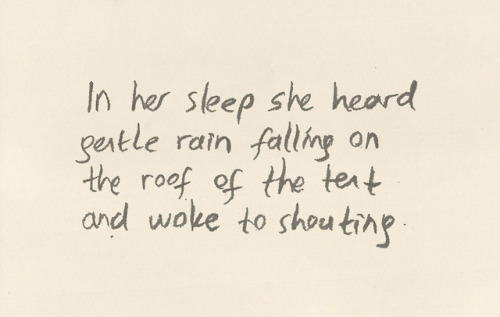 In her sleep she heard
gentle rain falling on
the roof of the tent
and woke to shouting.